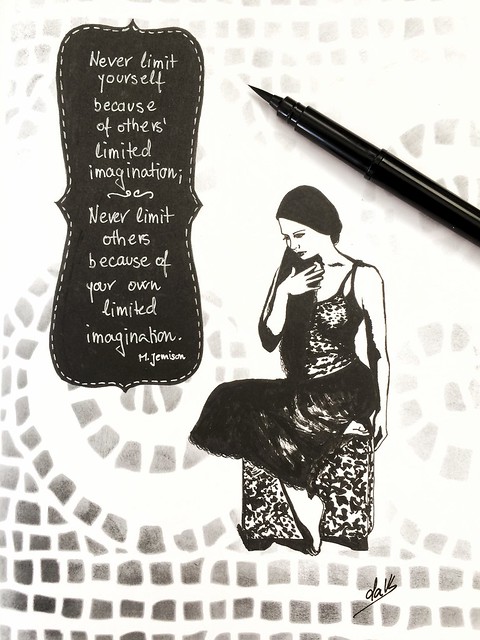 Never limit
yourself
because
of others'
limited
imagination;
Never limit
others
because of
your own
limited
imagination.
M. Jemison